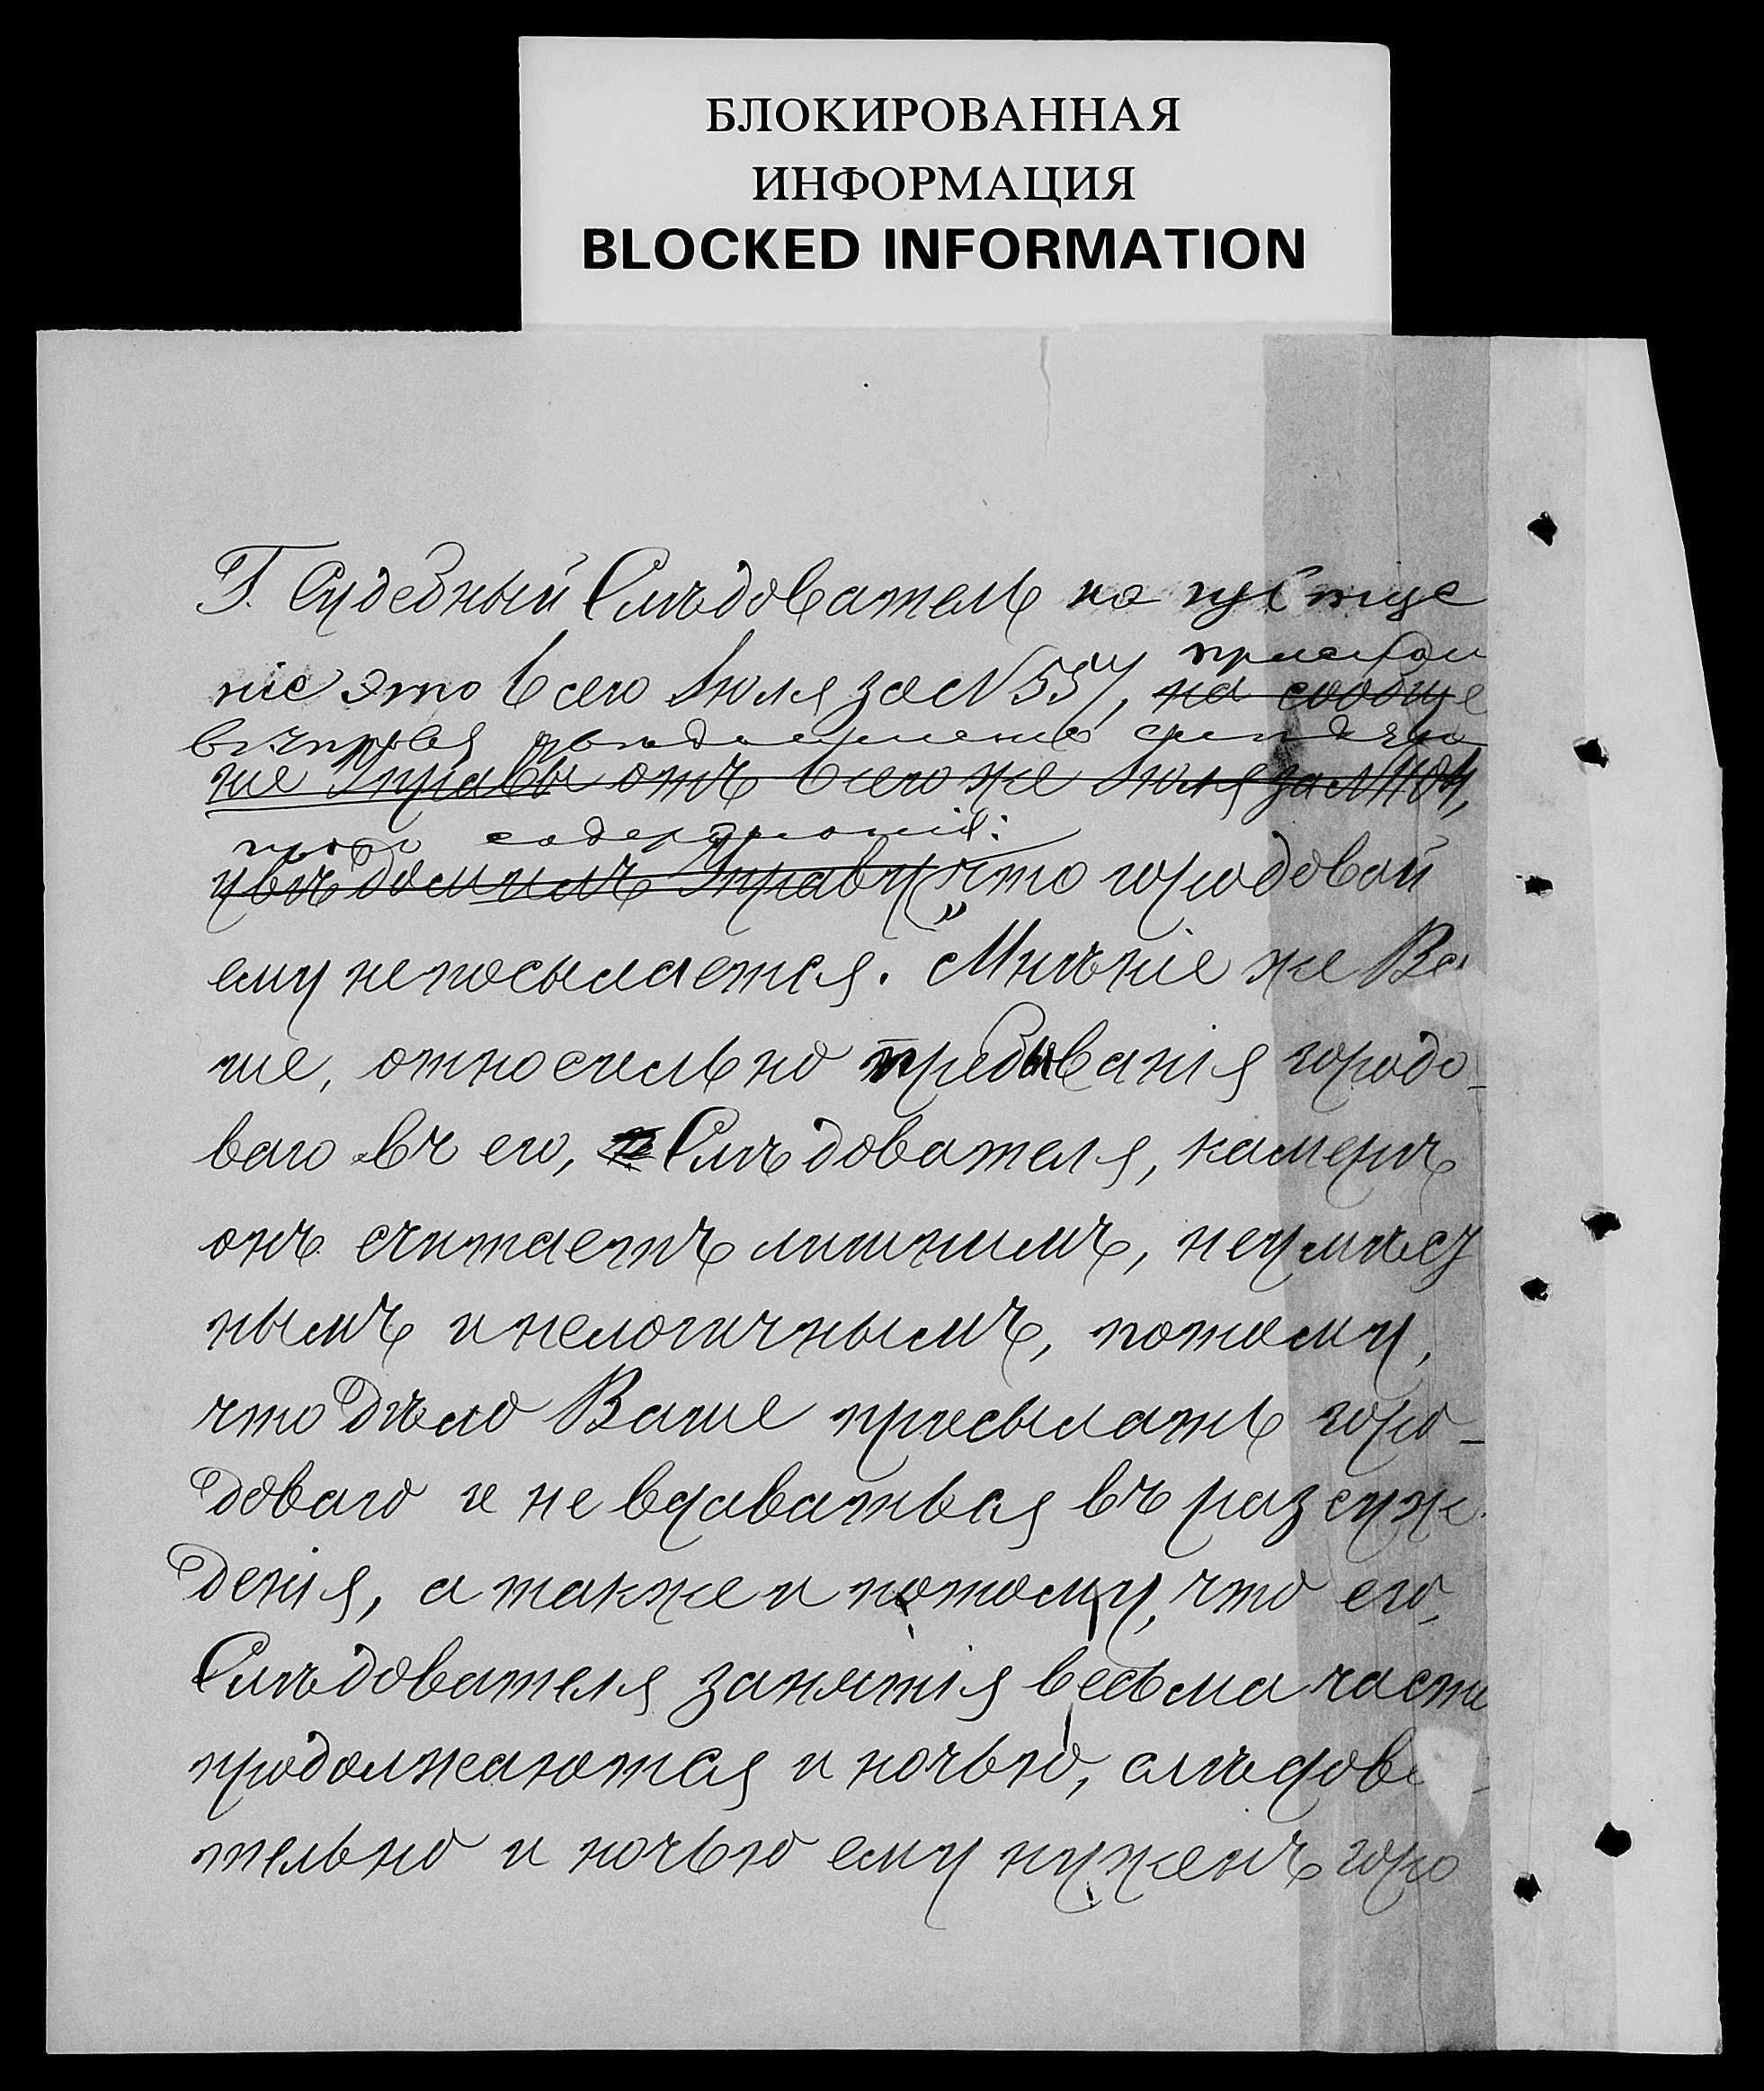 БЛОКИРОВАННАЯ
ИНФОРМАЦИЯ
BLOCKED INFORMATION
Г. Судебный Слѣдователь на
прислалъ
ніе это 6 сего Іюля за №557, на сообще
въ Управу слѣдующаго
ніе Управы отъ 6 сего же Іюля за №
содержанія:
увѣдомилъ Управу, „что городовой
ему не посылается. Мнѣніе же Ва
ше, относительно пребыванія городо-
ваго въ его, Слѣдователя, камерѣ
онъ считаетъ лишнимъ, неумѣст
нымъ и нелогичнымъ, потому,
что дѣло Ваше присылать горо-
доваго и не вдаваться въ разсуж-
денія, а также и потому, что его,
Слѣдователя занятія весьма часто
продолжаются и ночью, слѣдова
тельно и ночью ему нуженъ горо